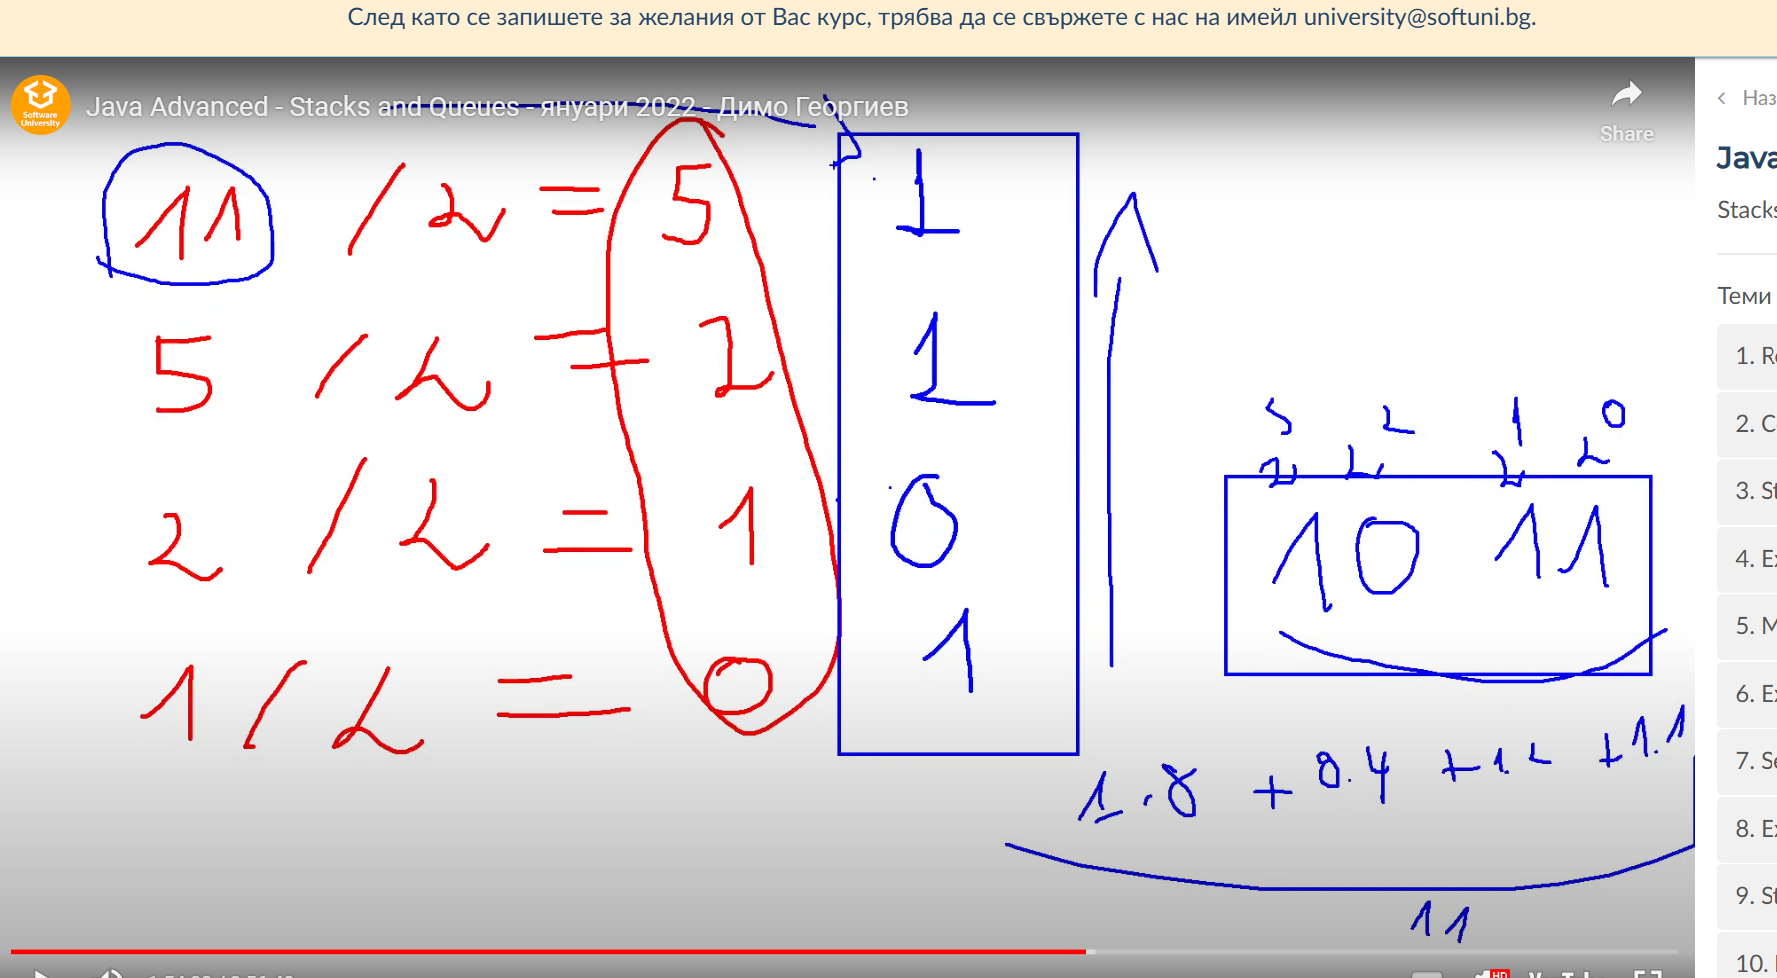 След като се запишете за желания от Вас курс, трябва да се свържете с нас на имейл university@softuni.bg.
Software University
Java Advanced - Stacks and Queues - януари 2022 - Димо Георгиев
Share
11 / 2 = 5 1
5 / 2 = 2 1
2 / 2 = 1 0
1 / 2 = 0 1
3 2 1 0
2 2 2 2
1 0 1 1
1.8 + 0.4 + 1.2 + 1.1
11
HD
Наз
Java
Stacks
Теми
1. R
2. C
3. St
4. Ex
5. M
6. Ex
7. Se
8. Ex
9. St
10.